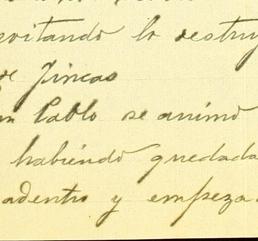 evitando lo destruy
de Fincas
n Pablo se animó
habiendo quedada
adentro y empeza